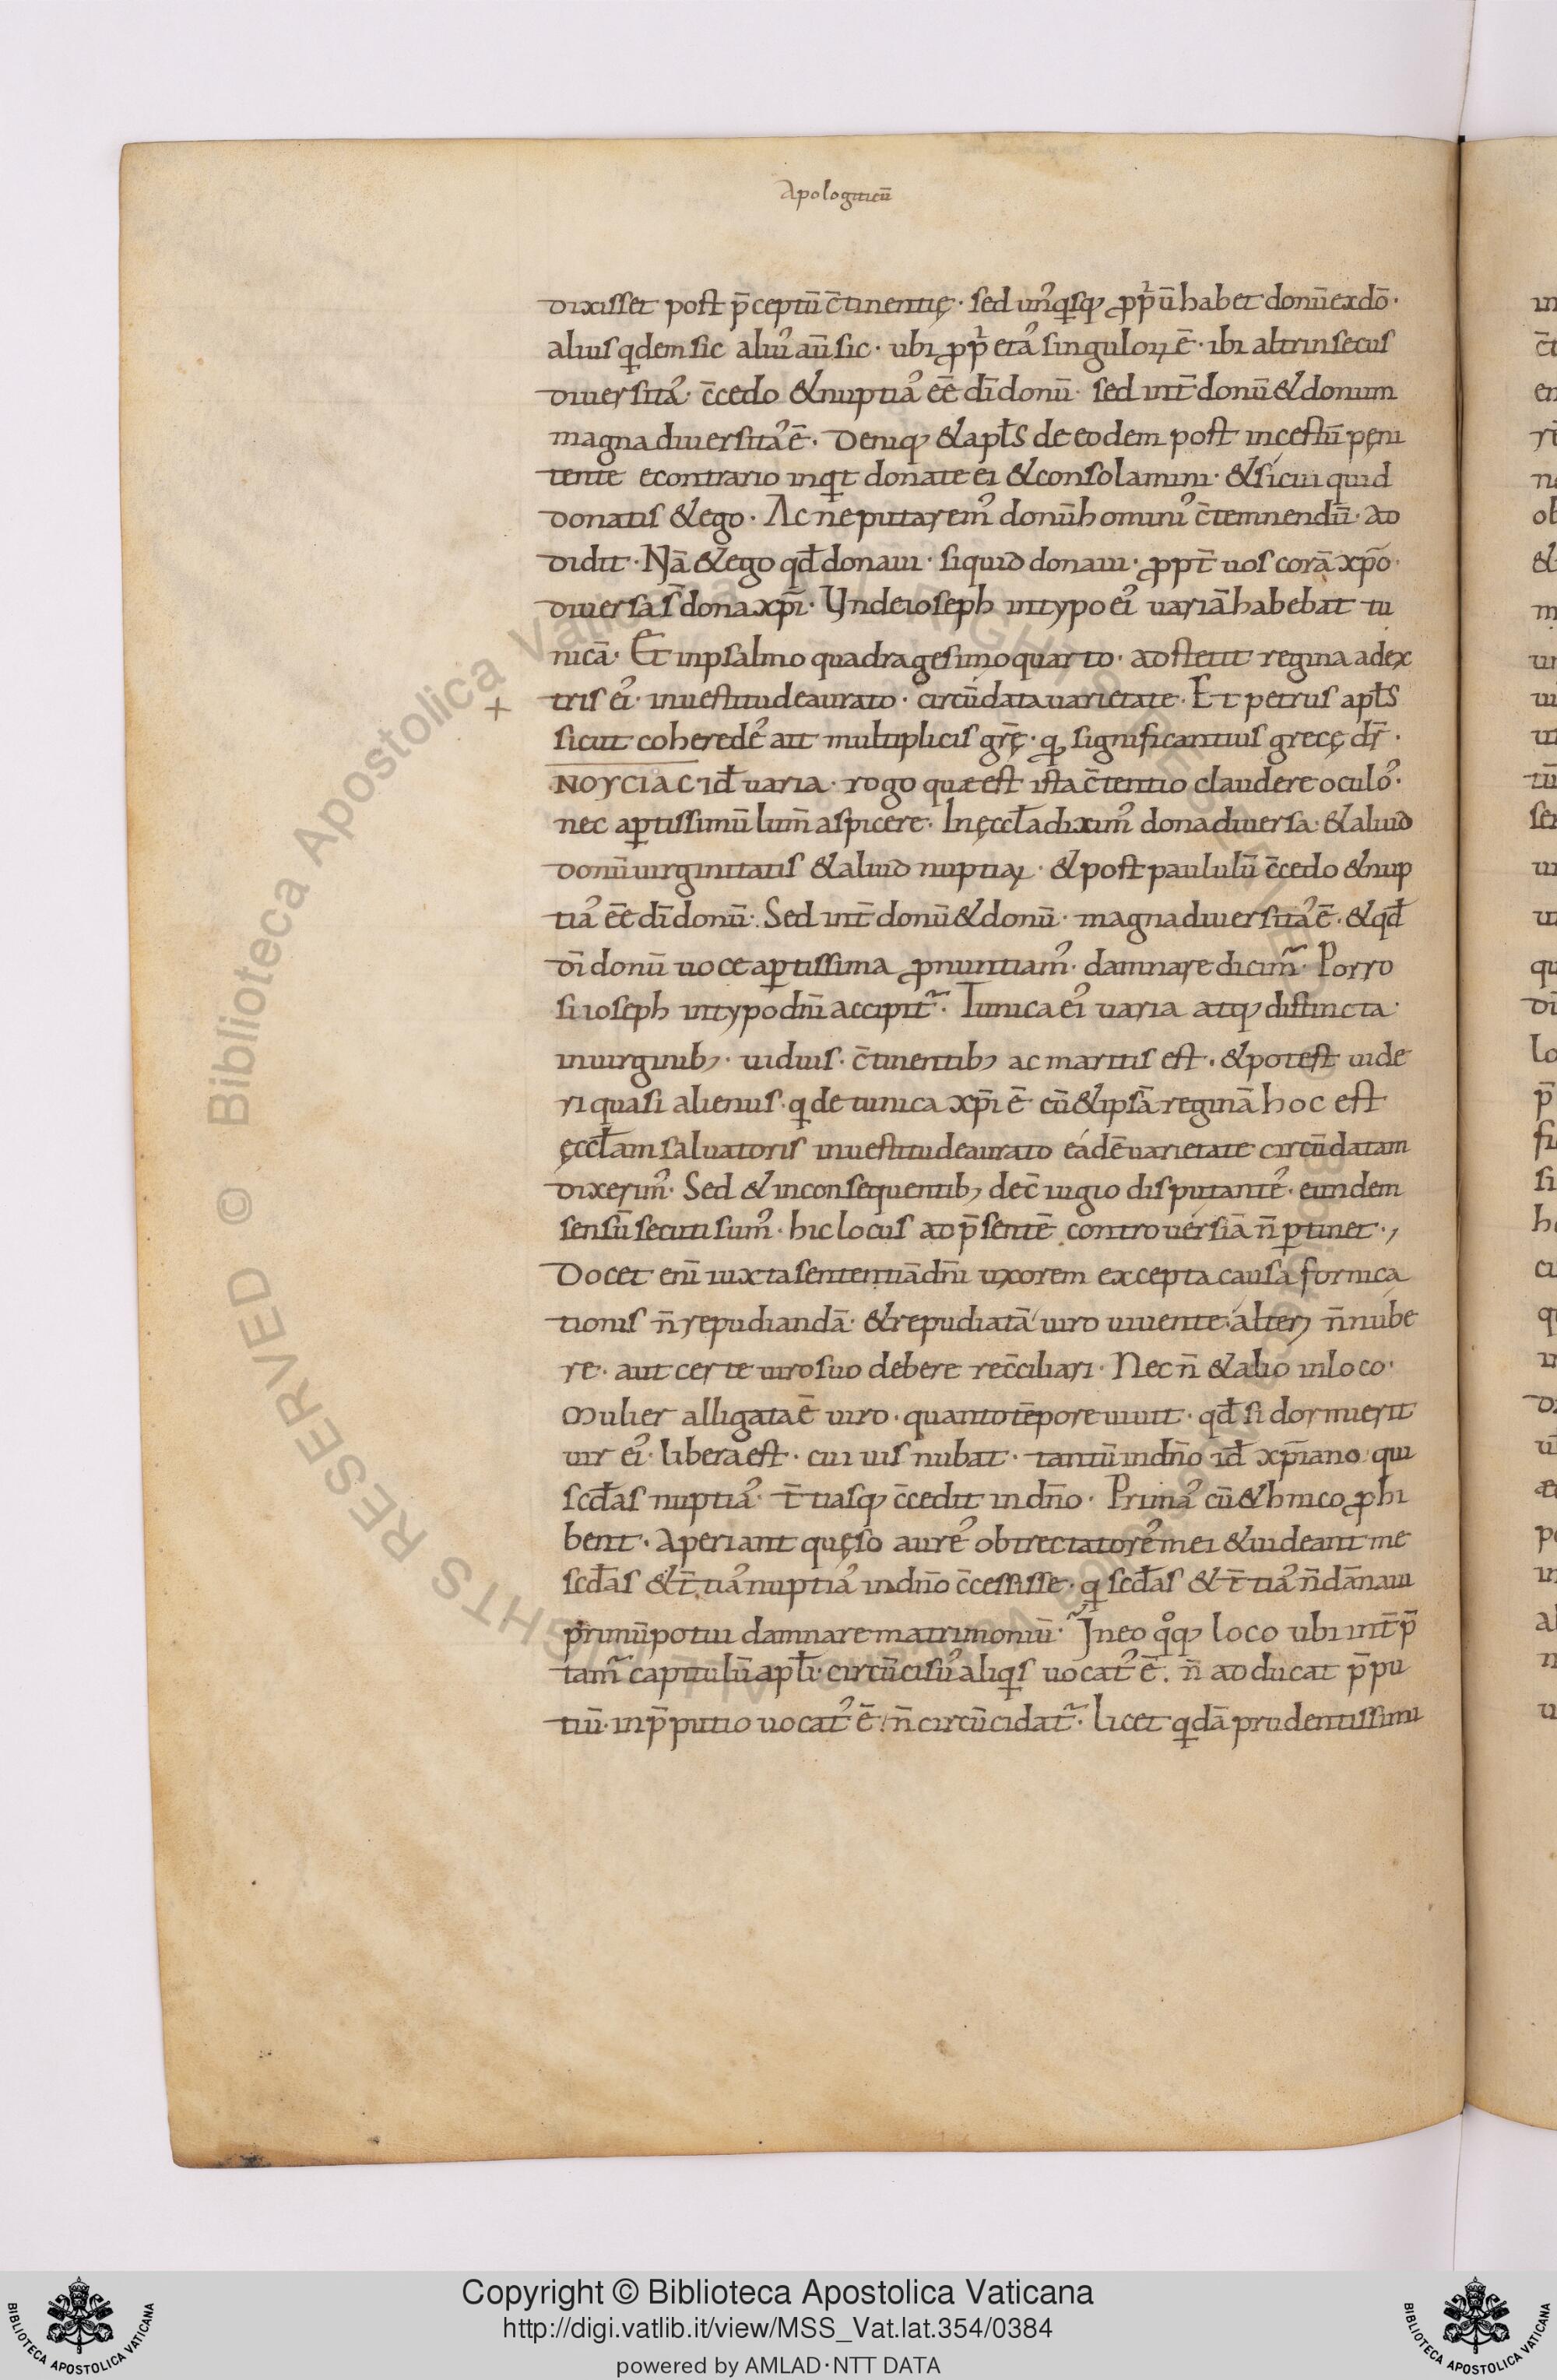 Apologiticū
dixisset post p̄ceptū c̄tinentię · sed un᾿qisq; ꝓpi̍ū habet donū exdō ·
alius qdem sic aliu᾿ aū sic · ubi ꝓp̍eta᾿ singuloꝝ ē · ibi altrinsecus
diuersita᾿ · c̄cedo & nuptia᾿ eē dī donū · sed int̄ donū & donum
magna diuersita᾿ ē · Deniq; & apłs de eodem post incestū pęni
tente econtrario inqt donate ei & consolamini · & sicui quid
donatis & ego · Ac ne putarem᾿ donū homini᾿ c̄temnendū · ad
didit · Nā & ego qđ donaui · siquid donaui · ꝓpt̄ uos corā xp̄o ·
diuersa s̄ dona xp̄i · Vnde ioseph intypo ei᾿ uariā habebat tu
nicā · Et inpsalmo quadragesimo quarto · adstetit regina adex
tris ei᾿ · inuestitu deaurato · circūdata uarietate · Et petrus apłs
sicut coherede᾿ ait multiplicis gr̄ę · q significantius grecę dr̄ ·
NOYCIAC · iđ uaria · rogo quae est ista c̄tentio claudere oculo᾿ ·
nec aꝑtissimū lum̄ aspicere · In ęccła diximᷤ dona diuersa · & aliud
donū uirginitatis & aliud nuptiaꝝ · & post paululū c̄cedo & nup
tia᾿ eē dī donū · Sed int̄ donū & donū · magna diuersita᾿ ē · & qđ
dī donū uoce aꝑtissima ꝓnuntiam᾿ · damnare dicim̃ · Porro
si ioseph intypo dn̄i accipit̃ · Tunica ei᾿ uaria atq; distincta ·
inuirginib; · uiduis · c̄tinentib; ac maritis est · & potest uide
ri quasi alienus · q de tunica xp̄i ē cū & ipsā reginā hoc est
ęccłam saluatoris inuestitu deaurato eádē uarietate circūdatam
dixerim᾿ · Sed & inconsequentib; dec̄iugio disputante᾿ · eundem
sensū secuti sum᾿ · hic locus ad p̄sentē controuersiā n̄ ꝑtinet · ,
Docet enī iuxta sententiā dn̄i uxorem excepta causa fornica
tionis n̄ repudiandā · & repudiatā uiro uiuente · alteri n̄ nube
re · aut certe uiro suo debere rec̄ciliari · Nec n̄ & alio inloco ·
Mulier alligata ē uiro · quanto tēpore uiuit · qđ si dormierit
uir ei᾿ · libera est · cui uis nubat · tantū indn̄o iđ xp̄iano · qui
scđas nuptia᾿ · t̄tiasq; c̄cedit in dn̄o · Prima᾿ cū & hnico ꝓhi
bent · Aperiant quęso aure᾿ obtrectatore᾿ mei & uideant me
scđas & t̄tia᾿ nuptia᾿ indn̄o c̄cessisse · q scđas & t̄tia᾿ n̄ dānaui
primū potui damnare matrimoniū · In eo qoq; loco ubi int̄p̄
tam̃ capitulū apłi · circūcisu᾿ aliqs uocat᾿ ē · n̄ adducat p̄pu
tiū · inp̄putio uocat᾿ ē · n̄ circūcidat̃ · licet qdā prudentissimi
Copyright © Biblioteca Apostolica Vaticana
http://digi.vatlib.it/view/MSS_Vat.lat.354/0384
powered by AMLAD·NTT DATA